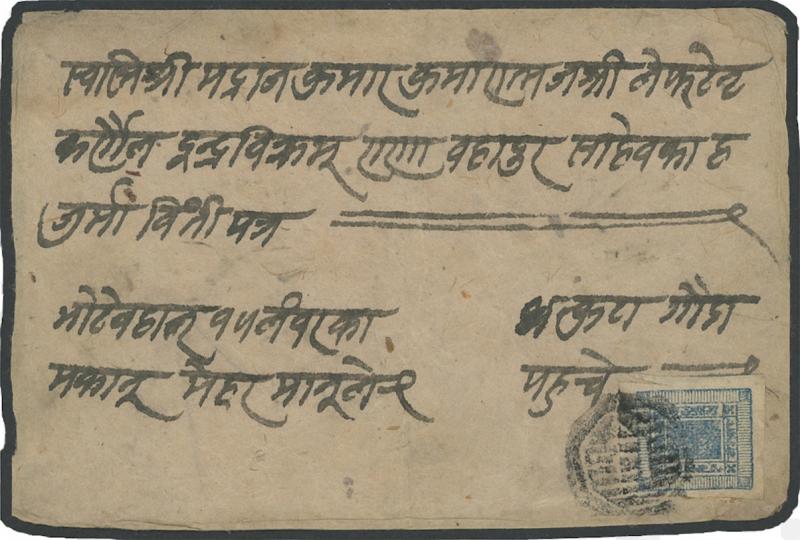 स्वस्तिश्री मद्राजकुमार कुमारात्मज श्री लेफ्टेन्ट
कर्णैल इन्द्रविक्रम राणा वहादुर साहेवका ह
जुर्मा विंती पत्र
भोटेवहाल १५ लंवरका
मकानू मेहर मानूले
गौडा
पहुचे